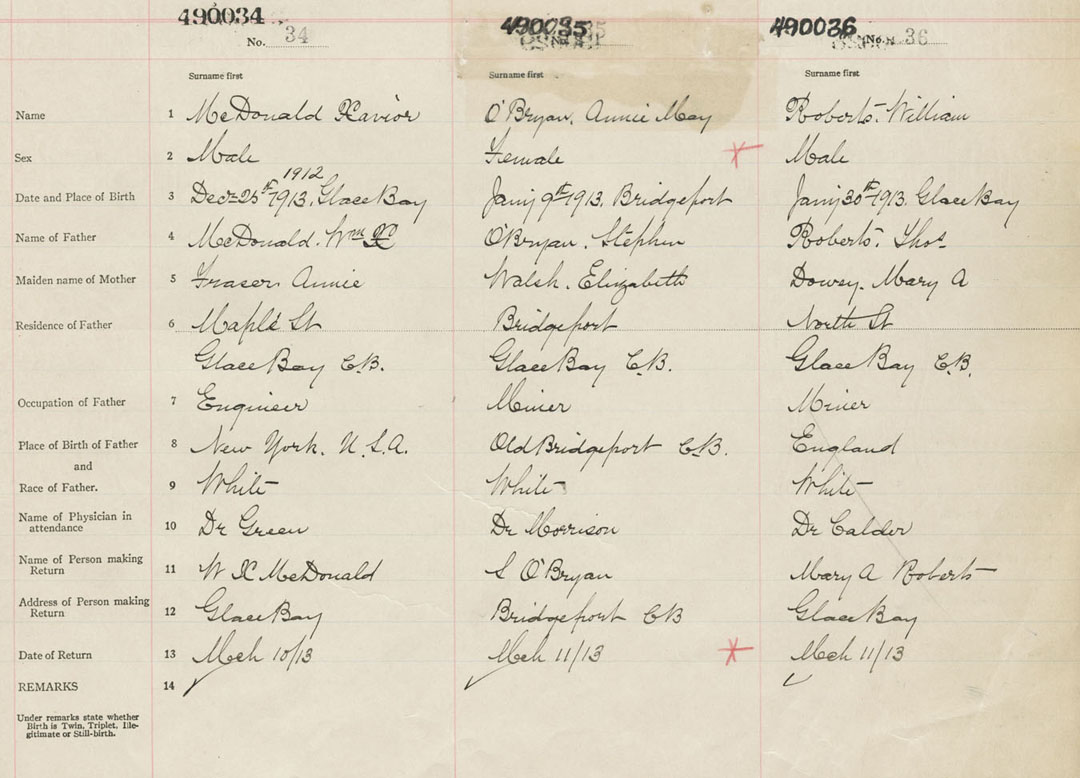 490034 490035 490036
No. 34 No. 36
Surname first Surname first Surname first
Name 1 McDonald Xavior O'Bryan, Annie May Roberts. William
Sex 2 Male Female Male
1912
Date and Place of Birth 3 Decr 25th 1913, Glace Bay Jany 9th 1913, Bridgeport Jany 30th 1913, Glace Bay
Name of Father 4 McDonald. Wm X O'Bryan, Stephen Roberts. Thos
Maiden name of Mother 5 Fraser, Annie Walsh. Elizabeth Dowey. Mary A
Residence of Father 6 Maple St Bridgeport North St
Glace Bay C.B. Glace Bay C.B. Glace Bay C.B.
Occupation of Father 7 Engineer Miner Miner
Place of Birth of Father 8 New York. U.S.A. Old Bridgeport C.B. England
and
Race of Father. 9 White White White
Name of Physician in
attendance 10 Dr Green Dr Morrison Dr Calder
Name of Person making
Return 11 W X McDonald S O'Bryan Mary A Roberts
Address of Person making
Return 12 Glace Bay Bridgeport CB Glace Bay
Date of Return 13 Mch 10/13 Mch 11/13 Mch 11/13
REMARKS 14
Under remarks state whether
Birth is Twin, Triplet, Ille-
gitimate or Still-birth.